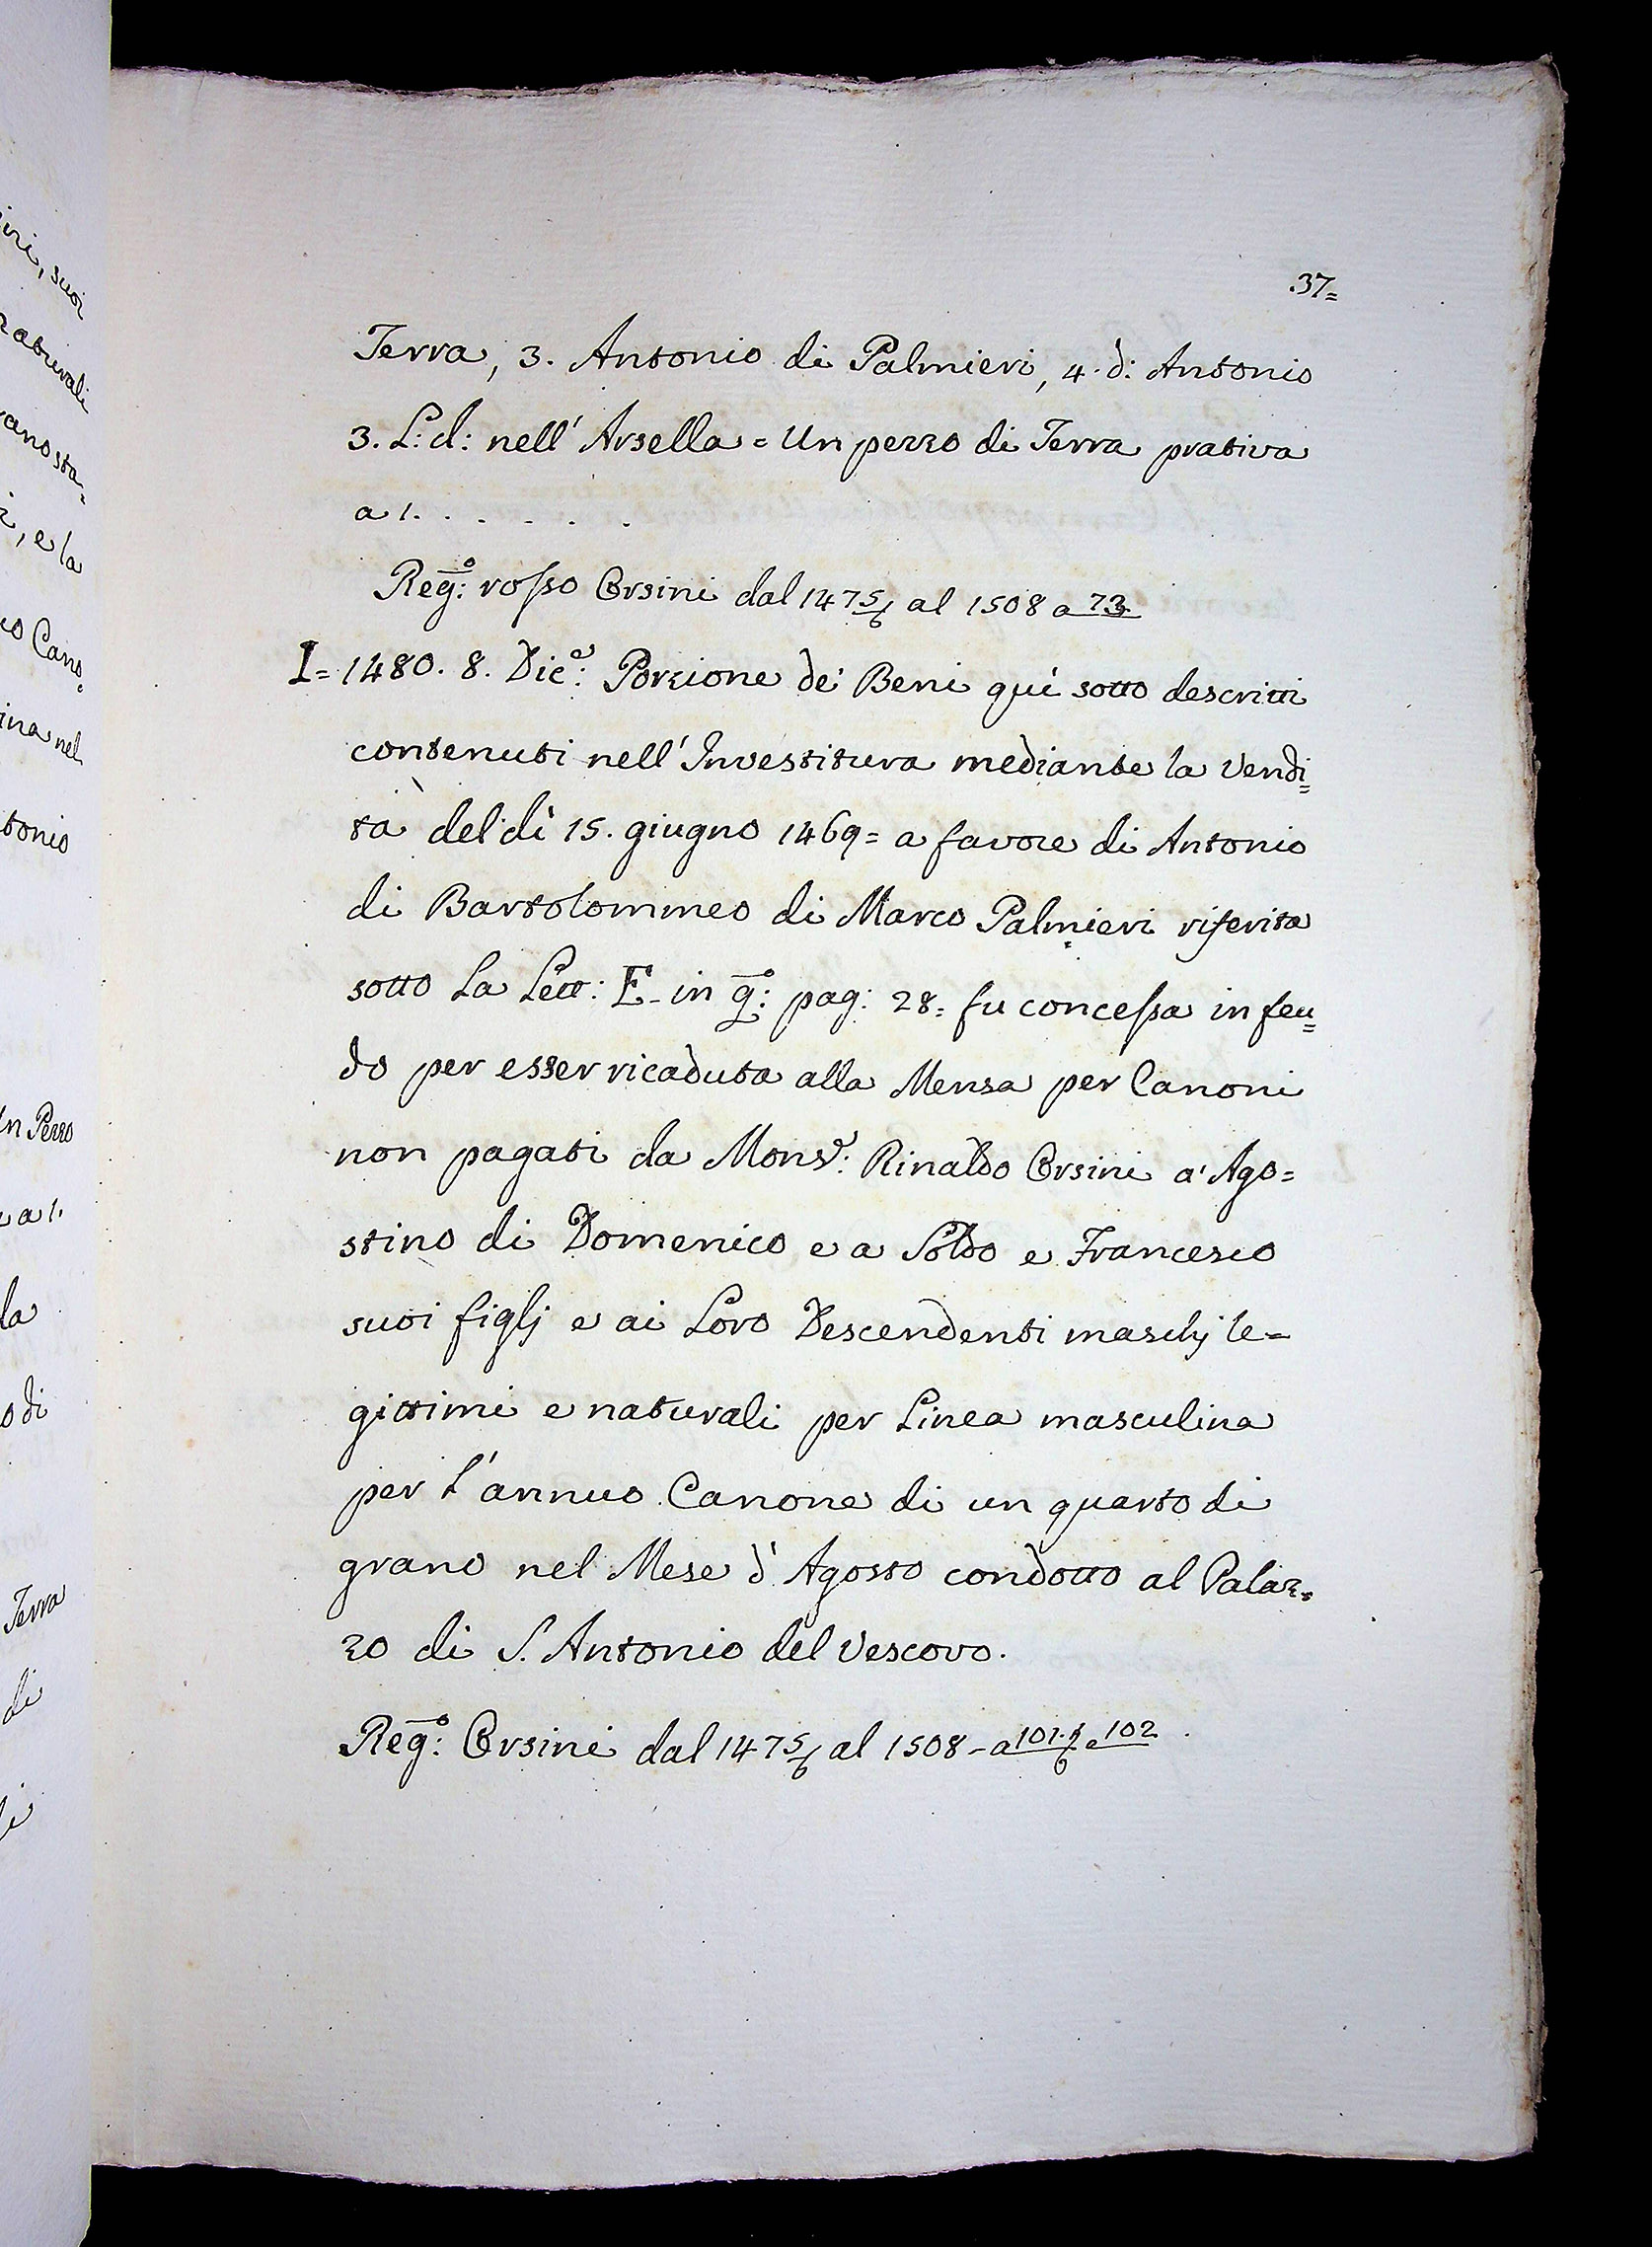 .37=
Terra, 3. Antonio di Palmieri, 4. d: Antonio
3. L: d: nell' Arsella = Un pezzo di Terra prativa
a 1. . . . . . .
Reg:º rosso Orsini dal 1475/6 al 1508 a 73.
I = 1480. 8. Dic:e Porzione de' Beni quì sotto descritti
contenuti nell' Investitura mediante la Vendi=
ta del dì 15. giugno 1469 = a favore di Antonio
di Bartolommeo di Marco Palmieri riferita
sotto La Lett: E - in q:º pag: 28 = fu concessa in feu=
do per esser ricaduta alla Mensa per Canoni
non pagati da Mons:r Rinaldo Orsini a' Ago=
stino di Domenico e a Soldo e Francesco
suoi figlj e ai Loro Descendenti maschj le=
gittimi e naturali per Linea masculina
per L' annuo Canone di un quarto di
grano nel Mese d' Agosto condotto al Palaz=
zo di S. Antonio del Vescovo.
Reg:º Orsini dal 1475/6 al 1508 - a 101. e 102
ini, suoi
naturali
, e la
Cano
ina nel
tonio
Un Pezzo
a 1.
la
o di
Terra
di